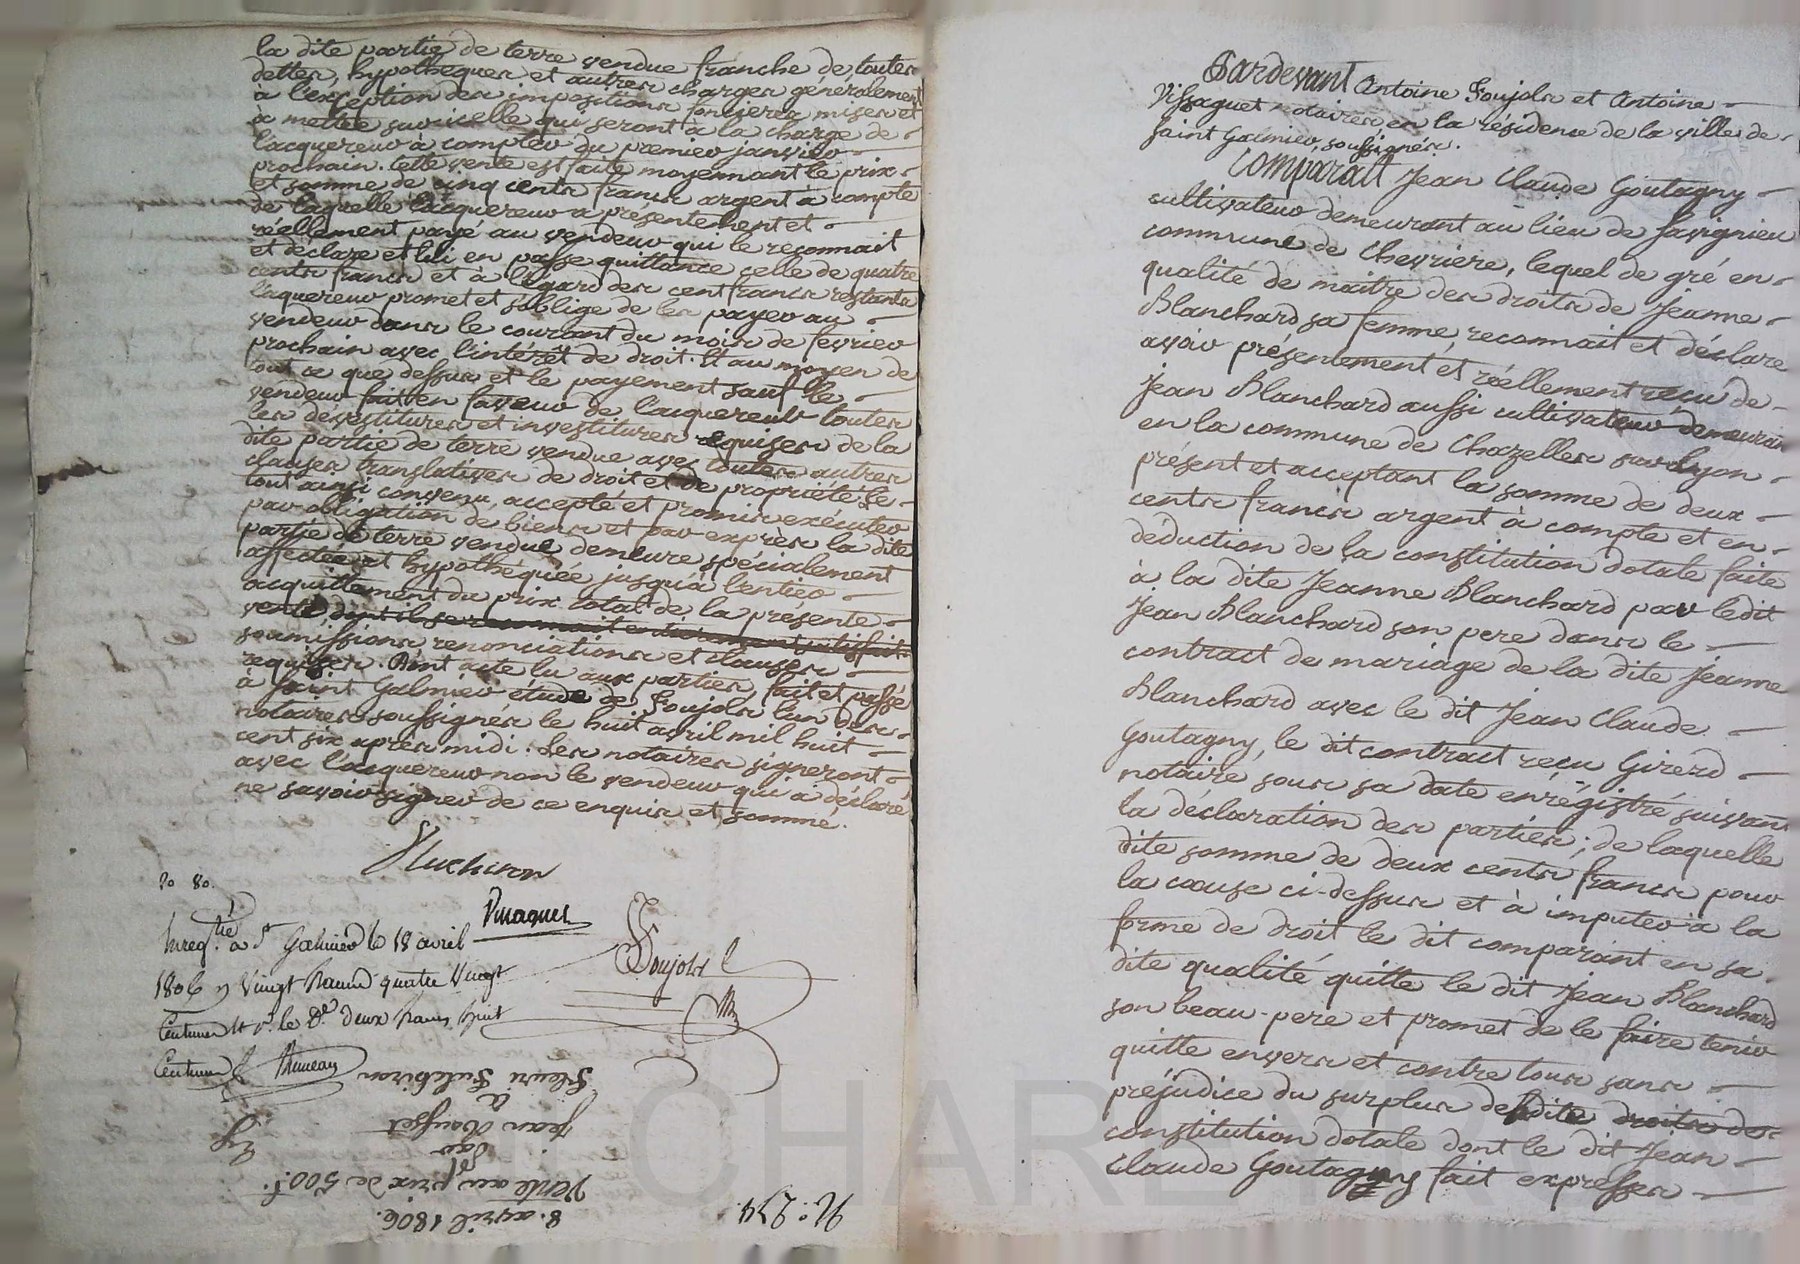 la dite partie de terre vendue franche de toutes
dettes, hypotheques et autres charges généralement
à l'exception des impositions foncieres mises et
à mettre sur icelle qui seront à la charge de
l'acquereur à compter du premier janvier
prochain. Cette vente est faite moyennant le prix
et somme de cinq cents francs argent à compte
de laquelle l'acquereur a présentement et
réellement payé au vendeur qui le reconnait
et déclare et lui en passe quittance celle de quatre
cents francs et à l'égard des cent francs restants
l'aquereur promet et s'oblige de les payer au
vendeur dans le courant du mois de fevrier
prochain avec l'intérêt de droit. Et au moyen de
tout ce que dessus et le payement sauf le
vendeur fait en faveur de l'acquereur toutes
les devestitures et investitures requises de la
dite partie de terre vendue avec toutes autres
clauses translatives de droit et de propriété. Le
tout ainsi convenu, accepté et promis exécuter
par obligation de biens et par exprès la dite
partie de terre vendue demeure spécialement
affectée et hypothéquée jusqu'à l'entier
acquittement du prix total de la présente
vente, dont il se entierement satisfait
soumissions renonciations et clauses
requises. Dont acte lu aux parties, fait et passé
à Saint Galmier étude de Foujols l'un des
notaires soussignés le huit avril mil huit
cent six après midi. Les notaires signeront
avec l'acquereur non le vendeur qui a déclaré
ne savoir signer de ce enquis et sommé.
20 80.
Vissaguet
Enregtré à St Galmier le 18 avril
Foujols
1806 Vingt francs quatre Vingt
Centimes et pr. le De. deux francs huit
Centimes
8. avril 1806.
Vente au prix de 500f.
par
Jean
à
N.o 234.
Pardevant Antoine Foujols et Antoine
Vissaguet notaires en la résidence de la ville de
Saint Galmier, soussignés.
Comparait Jean Claude Goutagny
cultivateur demeurant au lieu de Savignieu
commune de Chevriere, lequel de gré en
qualité de maitre des droits de Jeanne
Blanchard sa femme, reconnait et déclare
avoir présentement et réellement reçu de
Jean Blanchard aussi cultivateur demeurant
en la commune de Chazelles sur Lyon
présent et acceptant la somme de deux
cents francs argent à compte et en
déduction de la constitution dotale faite
à la dite Jeanne Blanchard par ledit
Jean Blanchard son pere dans le
contract de mariage de la dite Jeanne
Blanchard avec le dit Jean Claude
Goutagny, le dit contract reçu Girerd
notaire sous sa date enrégistré suivant
la déclaration des parties; de laquelle
dite somme de deux cents francs pour
la cause ci-dessus et à imputer à la
forme de droit le dit comparant en sa
dite qualité quitte le dit Jean Blanchard
son beau-pere et promet de le faire tenir
quitte envers et contre tous sans
préjudice du surplus de dite droits de
constitution dotale dont le dit Jean
Claude Goutagny fait expresses